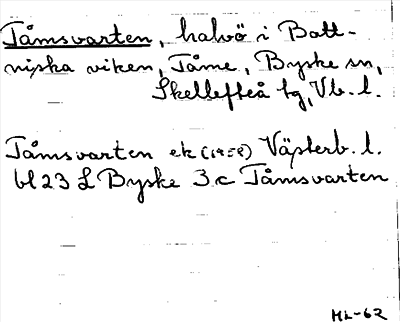 Tåmsvarten, halvö i Bott-
niska viken, Tåme, Byske sn,
Skellefteå tg, Vb. l.
Tåmsvarten ek (1959) Västerb. l.
bl 23 L Byske 3 c Tåmsvarten
HL-62